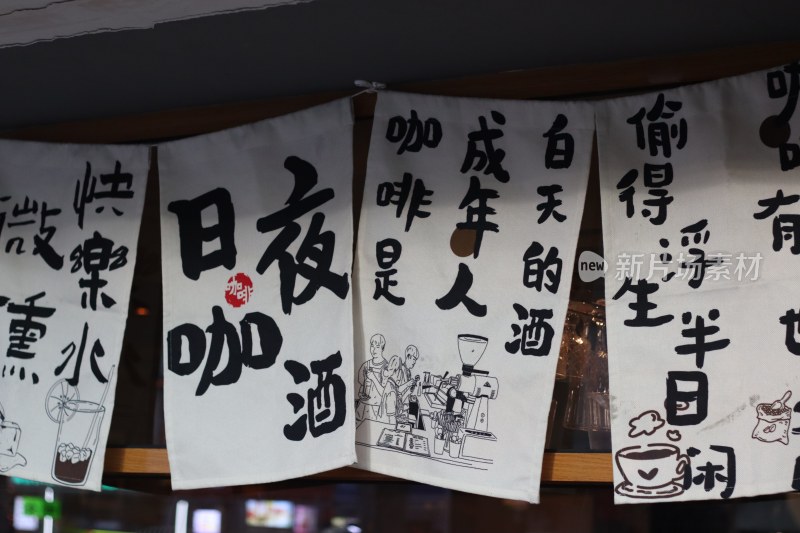 快樂水
微熏
日咖
夜酒
咖啡
咖啡是
成年人
白天的酒
偷得
浮生
半日闲
咖啡
有
也
new
新片场素材